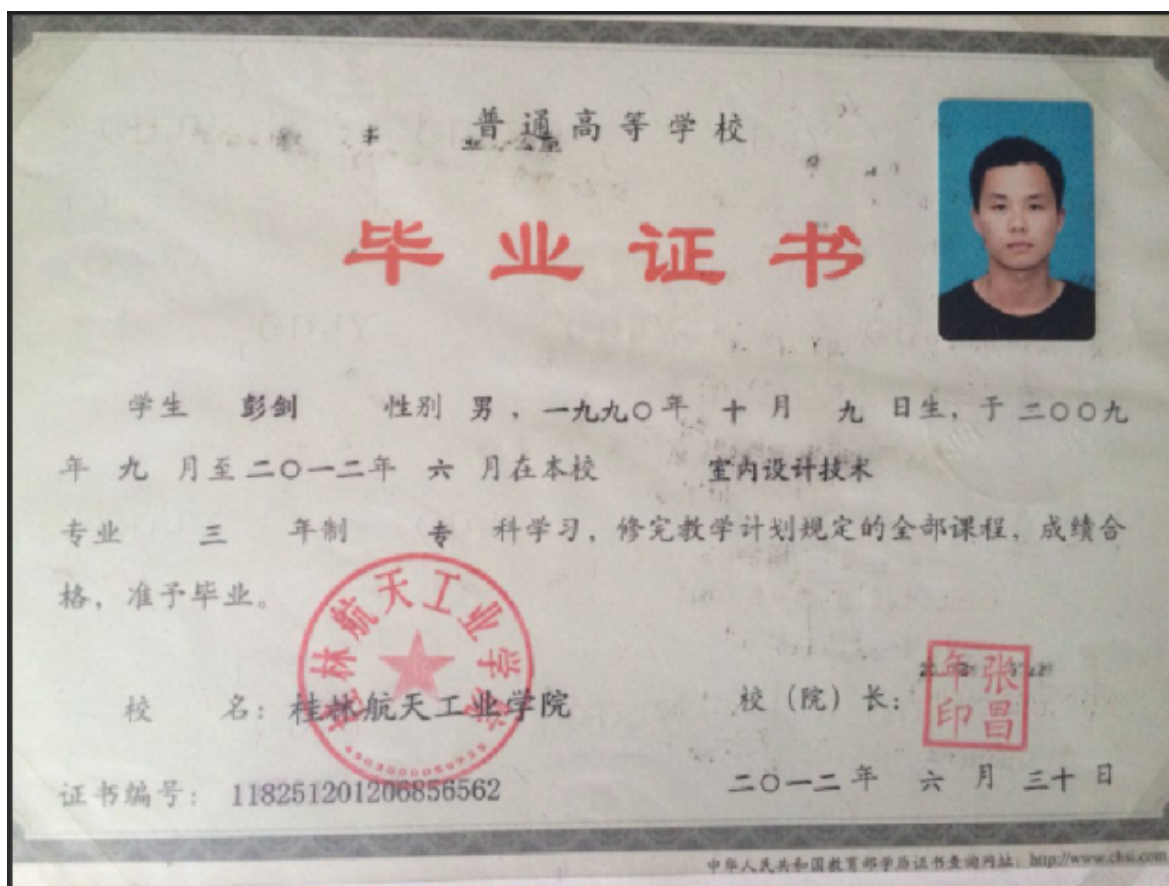 普通高等学校
毕业证书
学生 彭剑 性别 男，一九九〇年 十 月 九 日生，于二〇〇九
年 九 月至二〇一二年 六 月在本校 室内设计技术
专业 三 年制 专 科学习，修完教学计划规定的全部课程，成绩合
格，准予毕业。
桂林航天工业学院
校 名：桂林航天工业学院
校（院）长：
张昌年印
证书编号：118251201206856562
二〇一二年 六 月 三十 日
中华人民共和国教育部学历证书查询网址：http://www.chsi.com